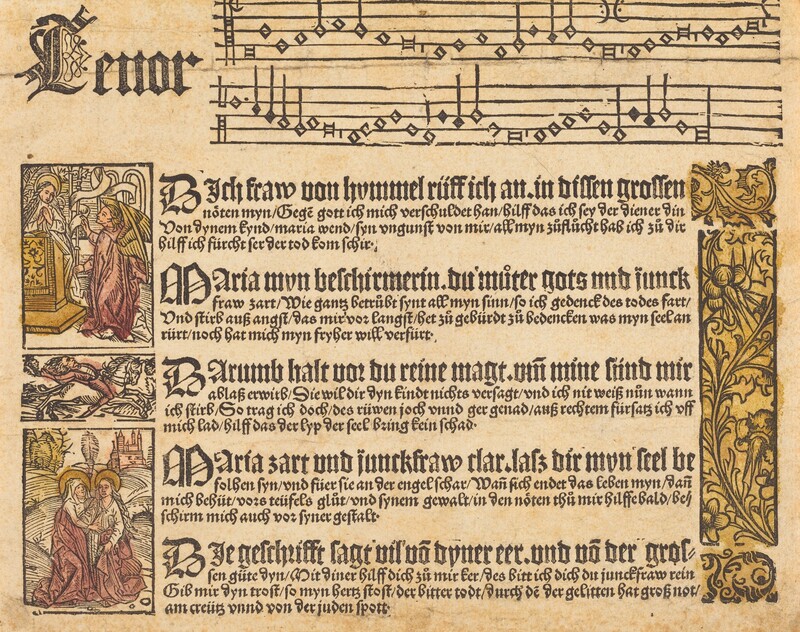 Tenor
DIch fraw von hymmel rüff ich an. in dissen grossen
nöten myn/Gegē gott ich mich verschuldet han/hilff das ich sey der diener din
Von dynem kynd/maria wend/syn vngunst von mir/all myn zůflücht hab ich zů dir
hilff ich fürcht ser der tod kom schir.
MAria myn beschirmerin. du můter gots vnd junck
fraw zart/Wie gantz betrübt synt all myn sinn/so ich gedenck des todes fart/
Vnd stirb auß angst/das mir vor langst/het zů gebürdt zů bedencken was myn seel an
rürt/noch hat mich myn fryher will verfürt.
DArumb halt vor du reine magt. vm̄ mine sünd mir
ablaß erwirb/Sie wil dir dyn kindt nichts versagt/vnd ich nit weiß nůn wann
ich stirb/So trag ich doch/des rüwen joch vnnd ger genad/auß rechtem fürsatz ich vff
mich lad/hilff das der lyp der seel bring kein schad.
MAria zart vnd junckfraw clar. lasz dir myn seel be
folhen syn/vnd füer sie an der engel schar/Wan̄ sich endet das leben myn/dan̄
mich behüt/vors teüfels glůt/vnd synem gewalt/in den nöten thů mir hilffe bald/be/
schirm mich auch vor syner gestalt.
DIe geschrifft sagt vil vō dyner eer. vnd vō der gros-
sen güte dyn/Mit diner hilff dich zů mir ker/des bitt ich dich du junckfraw rein
Gib mir dyn trost/so myn hertz stost/der bitter todt/durch dē der gelitten hat groß not/
am creütz vnnd von der juden spott.